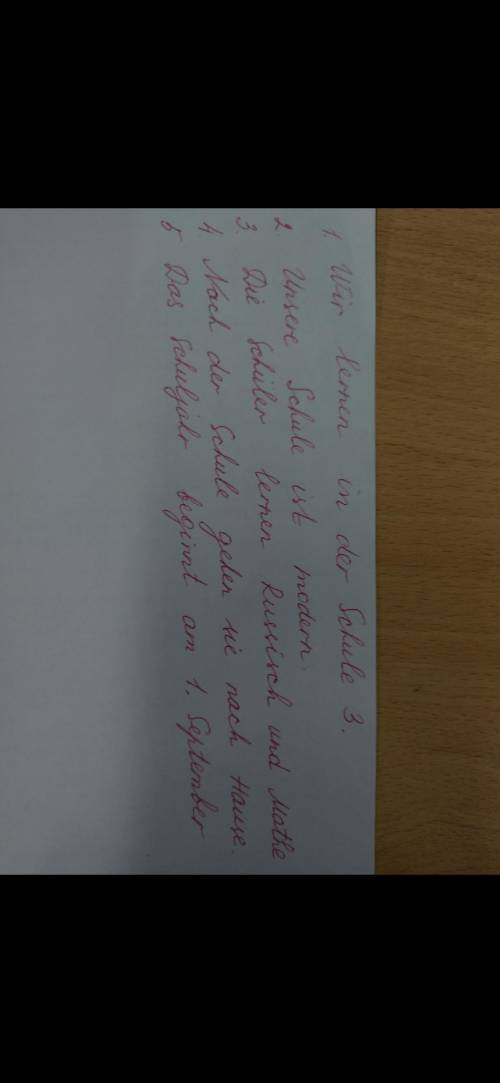 1. Wir lernen in der Schule 3.
2. Unsere Schule ist modern.
3. Die Schüler lernen Russisch und Mathe
4. Nach der Schule gehen sie nach Hause.
5. Das Schuljahr beginnt am 1. September